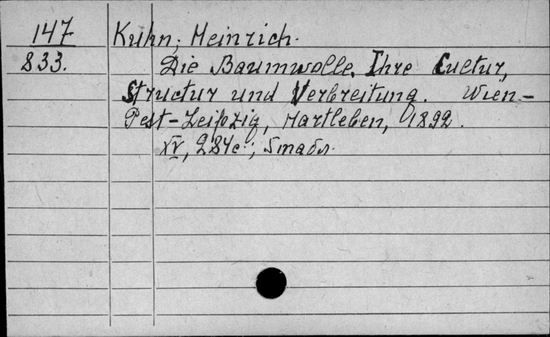 147 Kuhn, Heinrich.
833. Die Baumwolle. Ihre Cultur,
Structur und Verbreitung. Wien-
Pest-Leipzig, Hartleben, 1892.
XV, 284с.; 5табл.